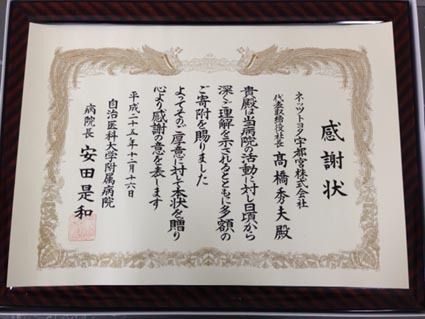 感謝状
ネッツトヨタ宇都宮株式会社
代表取締役社長 高橋秀夫殿
貴殿は当病院の活動に対し日頃から
深いご理解を示されるとともに多額の
ご寄附を賜りました
よってそのご厚意に対して本状を贈り
心より感謝の意を表します
平成二十五年十二月十六日
自治医科大学附属病院
病院長 安田是和